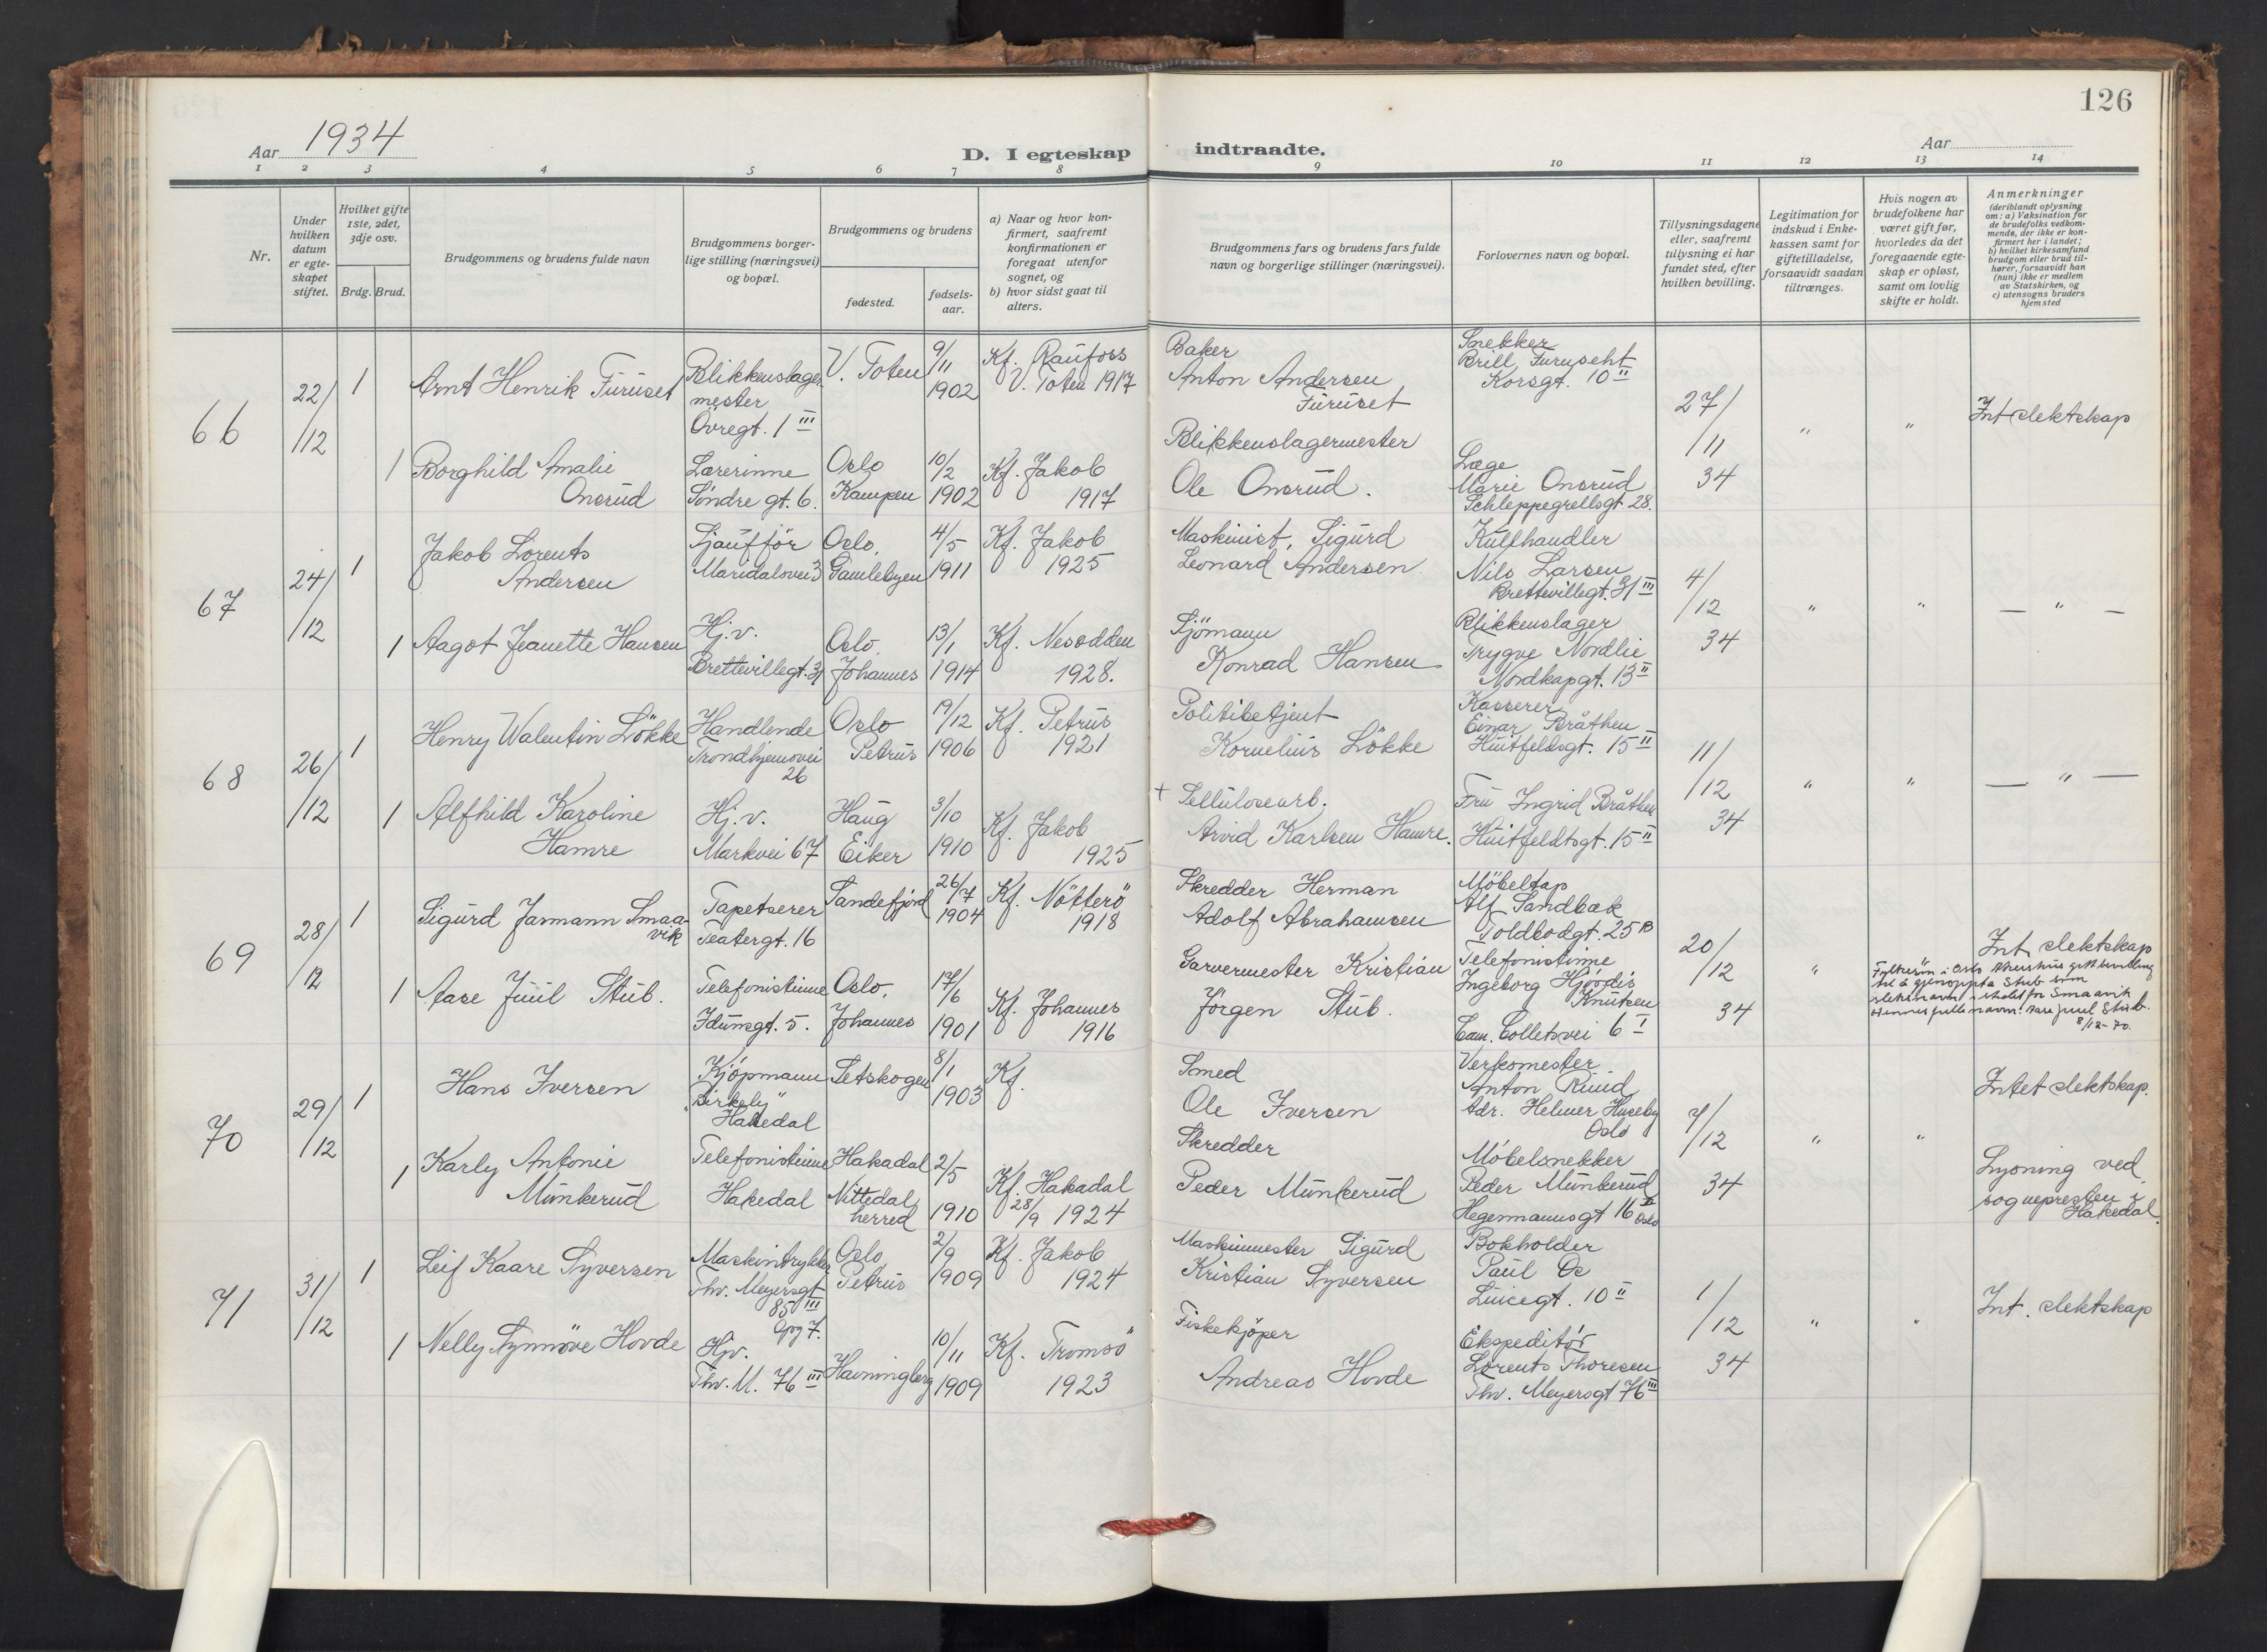 126
Aar 1934
D. I egteskap indtraadte.
Aar
1 2 3 4 5 6 7 8 9 10 11 12 13 14
Nr.
Under hvilken datum er egteskapet stiftet.
Hvilket gifte 1ste, 2det, 3dje osv.
Brdg. Brud.
Brudgommens og brudens fulde navn
Brudgommens borgerlige stilling (næringsvei) og bopæl.
Brudgommens og brudens
fødested.
fødselsaar.
a) Naar og hvor konfirmert, saafremt konfirmationen er foregaat utenfor sognet, og
b) hvor sidst gaat til alters.
Brudgommens fars og brudens fars fulde navn og borgerlige stillinger (næringsvei).
Forlovernes navn og bopæl.
Tillysningsdagene eller, saafremt tillysning ei har fundet sted, efter hvilken bevilling.
Legitimation for indskud i Enkekassen samt for giftetilladelse, forsaavidt saadan tiltrænges.
Hvis nogen av brudefolkene har været gift før, hvorledes da det foregaaende egteskap er opløst, samt om lovlig skifte er holdt.
Anmerkninger
(deriblandt oplysning om: a) Vaksination for de brudefolks vedkommende, der ikke er konfirmert her i landet; b) hvilket kirkesamfund brudgom eller brud tilhører, forsaavidt han (hun) ikke er medlem av Statskirken, og c) utensogns bruders hjemsted
66
22/12
1
Arnt Henrik Furuset
Blikkenslagermester
Övregt. 1 III
V. Toten
9/11 1902
Kf. Raufoss
V. Toten 1917
Baker
Anton Andersen
Furuset
Snekker
Brill Furuseht
Korsgt. 10 II
27/11 34
" "
Int slektskap
1
Borghild Amalie
Onsrud
Lærerinne
Söndre gt. 6.
Oslo
Kampen
10/2 1902
Kf. Jakob
1917
Blikkenslagermester
Ole Onsrud.
Læge
Marie Onsrud
Schleppegrellsgt. 28.
67
24/12
1
Jakob Lorents
Andersen
Sjauffør
Maridalsvei 3
Oslo,
Gamlebyen
4/5 1911
Kf. Jakob
1925
Maskinist, Sigurd
Leonard Andersen
Kullhandler
Nils Larsen
Brettevillegt. 31 III
4/12 34
" "
— " —
1
Aagot Jeanette Hansen
Hj.v.
Brettevillegt. 31
Oslo,
Johannes
13/1 1914
Kf. Nesodden
1928.
Sjömann
Konrad Hansen
Blikkenslager
Trygve Nordlie
Nordkapgt. 13 II
68
26/12
1
Henry Walentin Lökke
Handlende
Trondhjemsvei
26
Oslo
Petrus
19/12 1906
Kf. Petrus
1921
Politibetjent
Kornelius Lökke
Kasserer
Einar Bråthen
Huitfeldtsgt. 15 II
11/12 34
" "
— " —
1
Alfhild Karoline
Hamre
Hj.v.
Markvei 67
Haug
Eiker
3/10 1910
Kf. Jakob
1925
+ Cellulosearb.
Arvid Karlsen Hamre.
Fru Ingrid Bråthen
Huitfeldtsgt. 15 II
69
28/12
1
Sigurd Jarmann Smaavik
Tapetserer
Teatergt. 16
Sandefjord
26/7 1904
Kf. Nötterö
1918
Skredder Herman
Adolf Abrahamsen
Möbeltap
Alf Sandbæk
Toldbodgt. 25 B
20/12 34
"
Int. slektskap
Fylkesm. i Oslo Akershus gitt bevilling
til å gjenoppta Stub som
slektsnavn i stedet for Smaavik
Hennes fulle navn: Aase Juul Stub.
8/12-70.
1
Aase Juul Stub.
Telefonistinne
Idunsgt. 5.
Oslo,
Johannes
17/6 1901
Kf. Johannes
1916
Garvermester Kristian
Jörgen Stub.
Telefonistinne
Ingeborg Hjördis
Knutsen
Cam. Colletsvei 6 I
70
29/12
1
Hans Iversen
Kjøpmann
"Birkely"
Hakedal
Setskogen
8/1 1903
Kf.
Smed
Ole Iversen
Verksmester
Anton Ruud
Adr. Helmer Huseby
Oslo
7/12 34
" "
Intet slektskap.
1
Karly Antonie
Munkerud
Telefonistinne
Hakedal
Hakadal
Nittedal
herred
2/5 1910
Kf. Hakadal
28/9 1924
Skredder
Peder Munkerud
Möbelsnekker
Peder Munkerud
Hegermannsgt 16 Oslo
Lysning ved
sognepresten i
Hakedal.
71
31/12
1
Leif Kaare Syversen
Maskintrykker
Thv. Meyersgt
85 III
Opg 7.
Oslo
Petrus
2/9 1909
Kf. Jakob
1924
Maskinmester Sigurd
Kristian Syversen
Bokholder
Paul Os
Luicegt. 10 II
1/12 34
" "
Int. slektskap
1
Nelly Synnöve Hovde
Hjv.
Thv. M. 76 III
Havningberg
10/11 1909
Kf. Tromsö
1923
Fiskekjöper
Andreas Hovde
Ekspeditör
Lorents Thoresen
Thv. Meyersgt 76 III